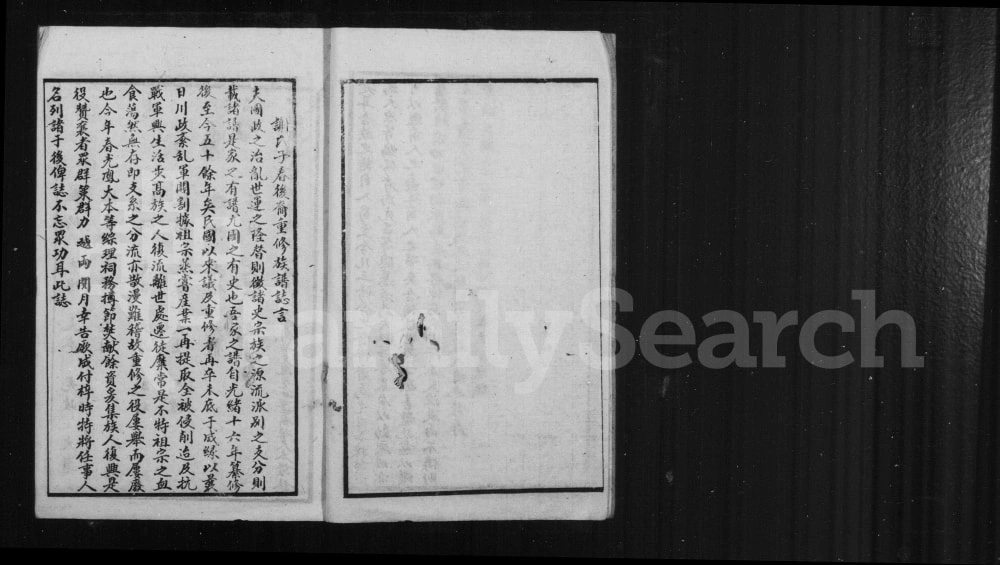 謝氏子春後裔重修族譜誌言
夫國政之治亂世運之隆替則徵諸史宗族之源流派別之支分則
載諸譜是家之有譜尤國之有史也吾家之譜自光緒十六年纂修
後至今五十餘年矣民國以來議及重修者再卒未底于成緣以曩
日川政紊乱軍閥割據祖宗蒸嘗產業一再提取全被侵削迨及抗
戰軍興生活步高族之人復流離世處遷徙靡常是不特祖宗之血
食蕩然無存即支系之分流亦散漫難稽故重修之役屢舉而屢廢
也今年春光鳳大本等綜理祠務撙節獻餘資爰集族人復興是
役贊襄者眾群策群力 兩閱月幸告厥成付梓時特將任事人
名列諸于後俾誌不忘眾功耳此誌
FamilySearch